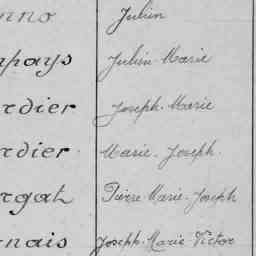 nno Julien
pays Julien Marie
rdier Joseph Marie
rdier Marie Joseph
rgat Pierre Marie Joseph
nais Joseph Marie Victor